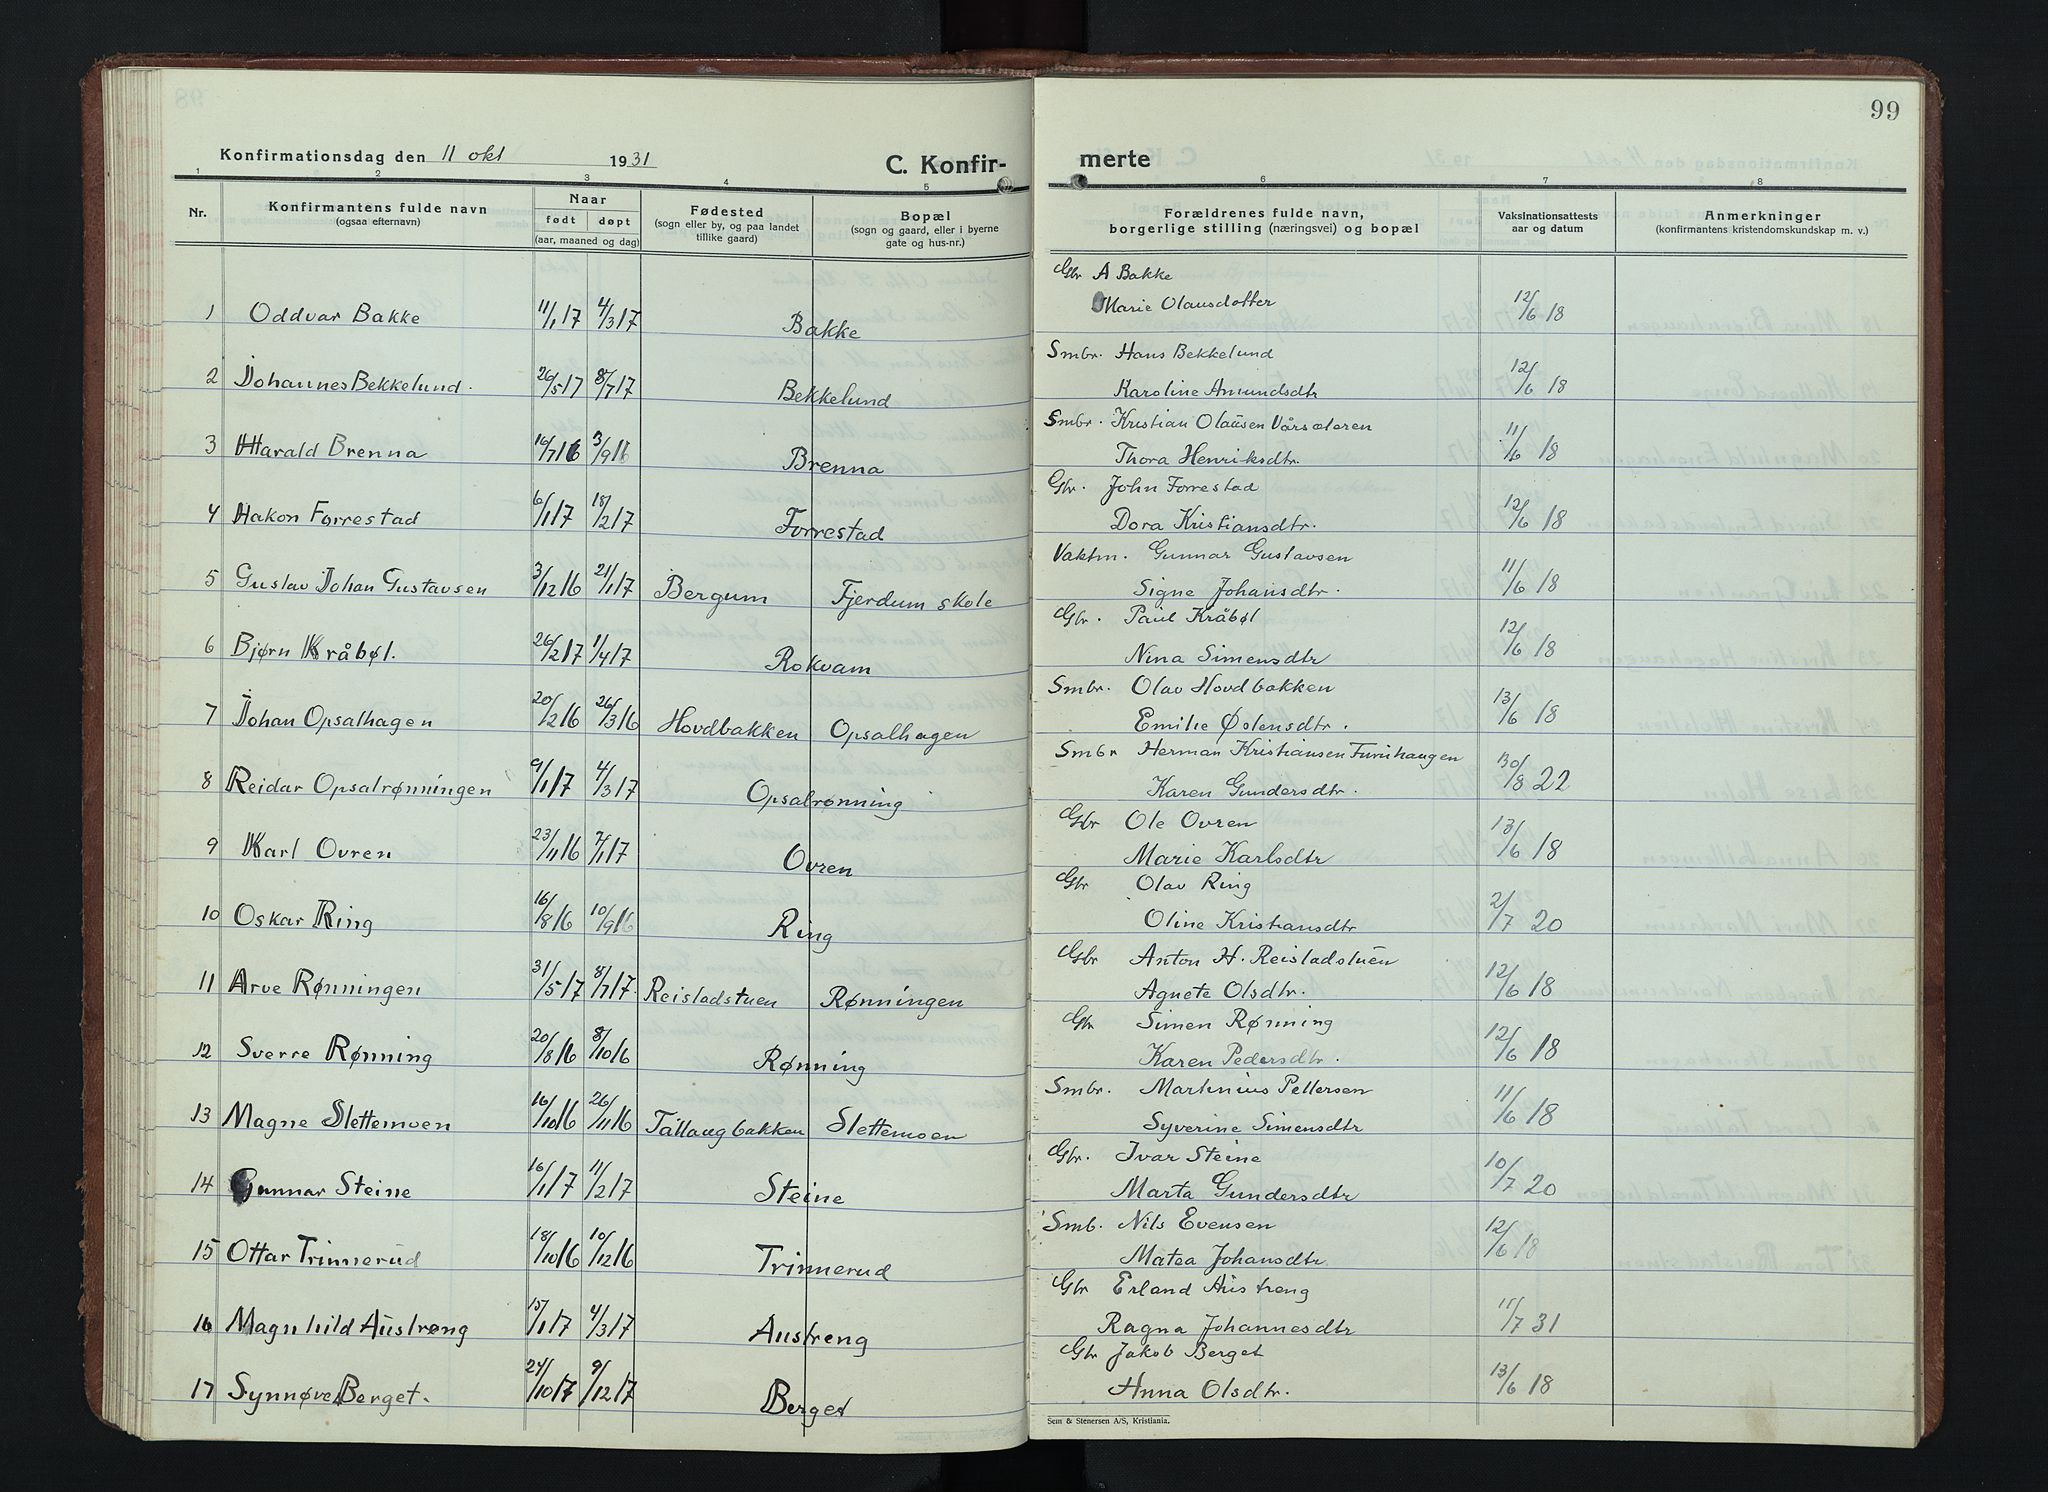 99
Konfirmationsdag den 11 okt 1931
C. Konfir-merte
1 2 3 4 5 6 7 8
Nr.
Konfirmantens fulde navn
(ogsaa efternavn)
Naar
født døpt
(aar, maaned og dag)
Fødested
(sogn eller by, og paa landet
tillike gaard)
Bopæl
(sogn og gaard, eller i byerne
gate og hus-nr.)
Forældrenes fulde navn,
borgerlige stilling (næringsvei) og bopæl
Vaksinationsattests
aar og datum
Anmerkninger
(konfirmantens kristendomskundskap m. v.)
Gbr A Bakke
1 Oddvar Bakke 11/1 17 4/3 17 Bakke Marie Olausdotter 12/6 18
Smbr. Hans Bekkelund
2 Johannes Bekkelund. 26/5 17 8/7 17 Bekkelund Karoline Amundsdtr 12/6 18
Smbr. Kristian Olaüsen Vårsæteren
3 Harald Brenna 16/7 16 3/9 16 Brenna Thora Henriksdtr. 11/6 18
Gbr. John Forrestad
4 Hakon Forrestad 6/1 17 18/2 17 Forrestad Dora Kristiansdtr. 12/6 18
Vaktm. Gunnar Gustavsen
5 Gustav Johan Gustavsen 3/12 16 21/1 17 Bergum Fjerdum skole Signe Johansdtr. 11/6 18
Gbr. Paul Kråbøl
6 Bjørn Kråbøl. 26/2 17 1/4 17 Rokvam Nina Simensdtr 12/6 18
Smbr. Olav Hovdbakken
7 Johan Opsalhagen 20/2 16 26/3 16 Hovdbakken Opsalhagen Emilie Østensdtr. 13/6 18
Smbr Herman Kristiansen Furuhaugen
8 Reidar Opsalrønningen 9/1 17 4/3 17 Opsalrønning Karen Gundersdtr. 30/8 22
Gbr Ole Ovren
9 Karl Ovren 23/11 16 7/1 17 Ovren Marie Karlsdtr 13/6 18
Gbr Olav Ring
10 Oskar Ring 16/8 16 10/9 16 Ring Oline Kristiansdtr 2/7 20
Gbr Anton H. Reistadstuen
11 Arve Rønningen 31/5 17 8/7 17. Reistadstuen Rønningen Agnete Olsdtr. 12/6 18
Gbr Simen Rønning
12 Sverre Rønning 20/8 16 8/10 16 Rønning Karen Pedersdtr. 12/6 18
Smbr. Martinius Pettersen
13 Magne Slettemoen 16/10 16 26/11 16 Tåttaugbakken Slettemoen Syverine Simensdtr 11/6 18
Gbr. Ivar Steine
14 Gunnar Steine 16/1 17 11/2 17 Steine Marta Gundersdtr 10/7 20
Smb. Nils Evensen
15 Ottar Trinnerud 18/10 16 10/12 16 Trinnerud Matea Johansdtr 12/6 18
Gbr Erland Austreng
16 Magnhild Austreng 15/1 17 4/3 17 Austreng Ragna Johannesdtr 11/7 31
Gbr Jakob Berget
17 Synnøve Berget. 24/10 17 9/12 17 Berget Anna Olsdtr. 13/6 18
Sem & Stenersen A/S, Kristiania.